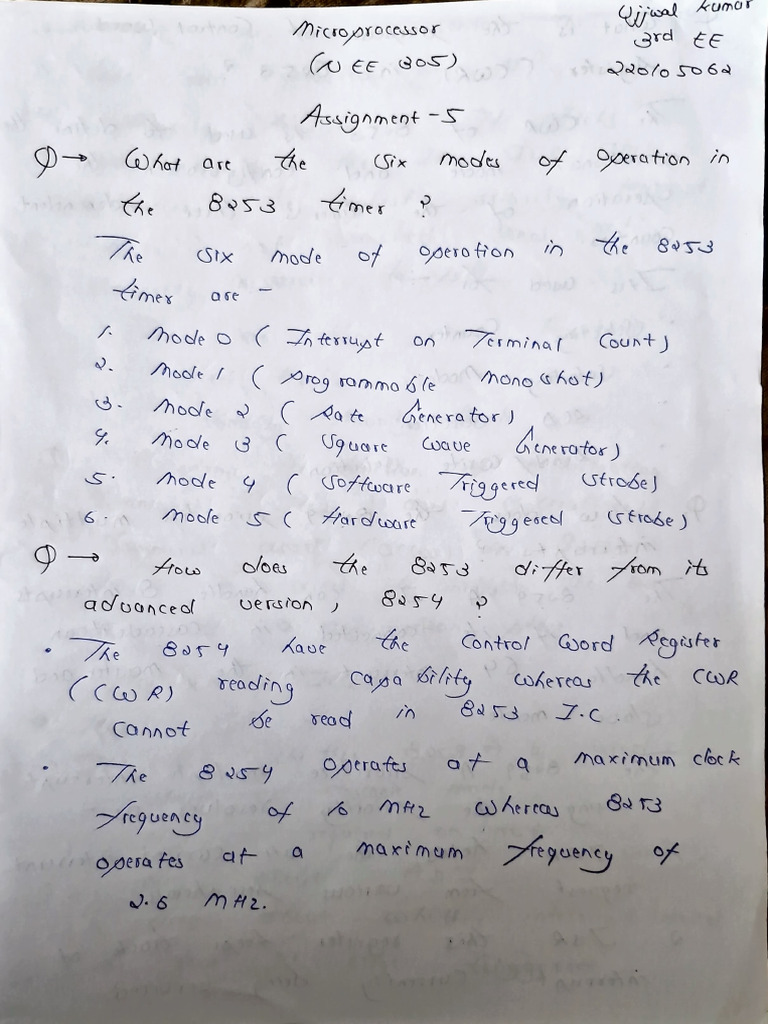 Ujjwal Kumar
Microprocessor
3rd EE
(NEE 305)
220105062
Assignment - 5
Q → What are the six modes of operation in
the 8253 timer ?
The six mode of operation in the 8253
timer are -
1. Mode 0 ( Interrupt on Terminal Count)
2. Mode 1 ( programmable monoshot)
3. Mode 2 ( Rate Generator)
4. Mode 3 ( Square wave Generator)
5. Mode 4 ( Software Triggered Strobe)
6. Mode 5 ( Hardware Triggered Strobe)
Q → How does the 8253 differ from its
advanced version, 8254 ?
• The 8254 have the Control Word Register
(CWR) reading capability whereas the CWR
cannot be read in 8253 I.C.
• The 8254 operates at a maximum clock
frequency of 10 MHz whereas 8253
operates at a maximum frequency of
2.6 MHz.